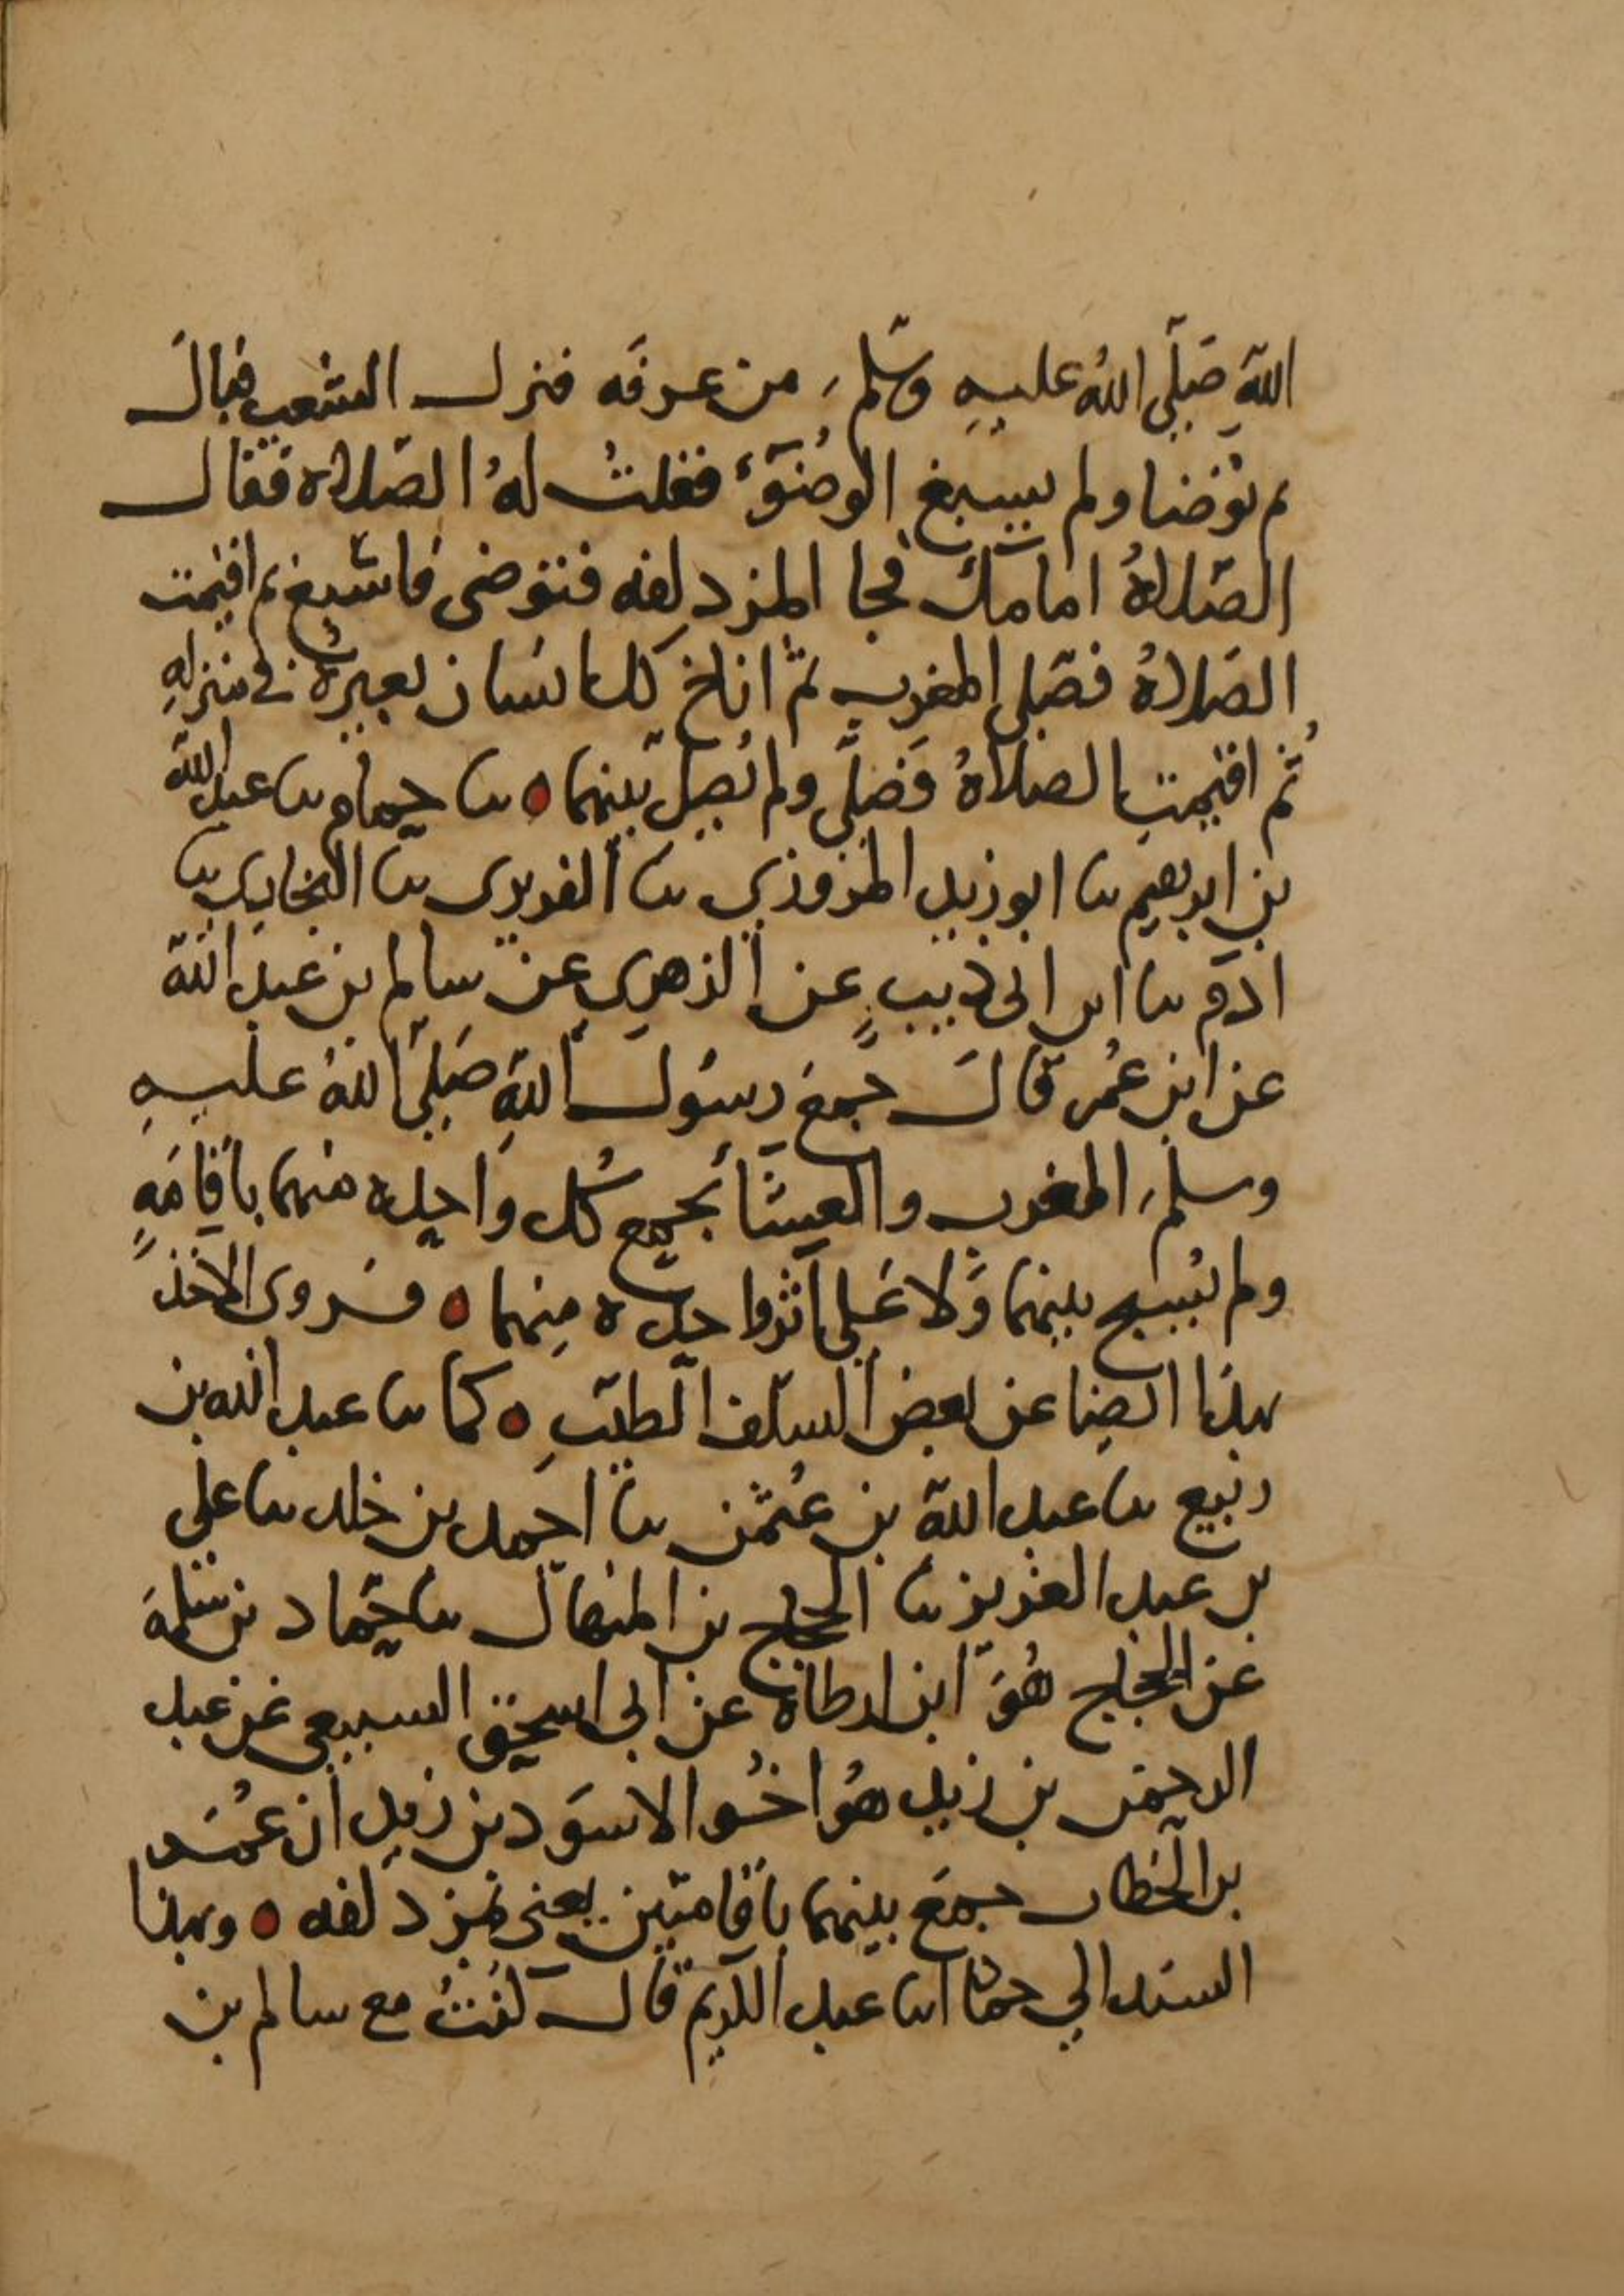 اللهِ صَلَّى اللهُ عليهِ وسَلَّم من عرفَه فنزل الشعب فبالَ
ثم توضا ولم يسبغ الوضوَء فقلتُ لهُ الصَّلاه فقال
الصَّلاةُ امامكَ فجا المزدلفه فتوضى فاسْبغ ثم اقيمت
الصَّلاةُ فصَلى المغرب ثمّ اناخ كل انسان بعيرهُ في منزلهِ
ثُم اقيمتِ الصلاةُ فَصَلَّى ولم يُصِل بينهما ه ىا حمام ىا عبد الله
بن ابرهيم ىا ابو زيد المروزي ىا الفربرى ىا البخاري ىا
ادم ىا ابن ابى ذيبٍ عن الزهري عن سالم بن عبد الله
عن ابن عُمر قالَ جمعَ رسُول اللهِ صَلىَ اللهُ عليهِ
وسلم المغرب والعِشَا بجمع كُل واحده منهما باقامَهٍ
ولم يُسبح بينهما وَلا عَلى اثر واحده مِنهما ه وروى الاخذ
بهذا ايضا عن بعض السَلف الطيّبِ ه كما ىا عبد الله بن
ربيع ىا عبد الله بن عُثمن ىا احمد بن خلد ىا على
بن عبد العزيز ىا الحجاج بن المنهال ىا حَمّاد بن سَلمةَ
عن الحجاج هُوَ ابن ارطاة عن ابى اسحق السبيعي عن عبد
الرحمن بن زيد هُو اخُو الاسوَد بن زيدِ ان عُمَر
بن الخطاب جمعَ بينهما باقامتَين يعنى بمزدلفه ه وبهذا
السند الي حماد انا عبد الكريم قال كُنتُ مع سالم بن